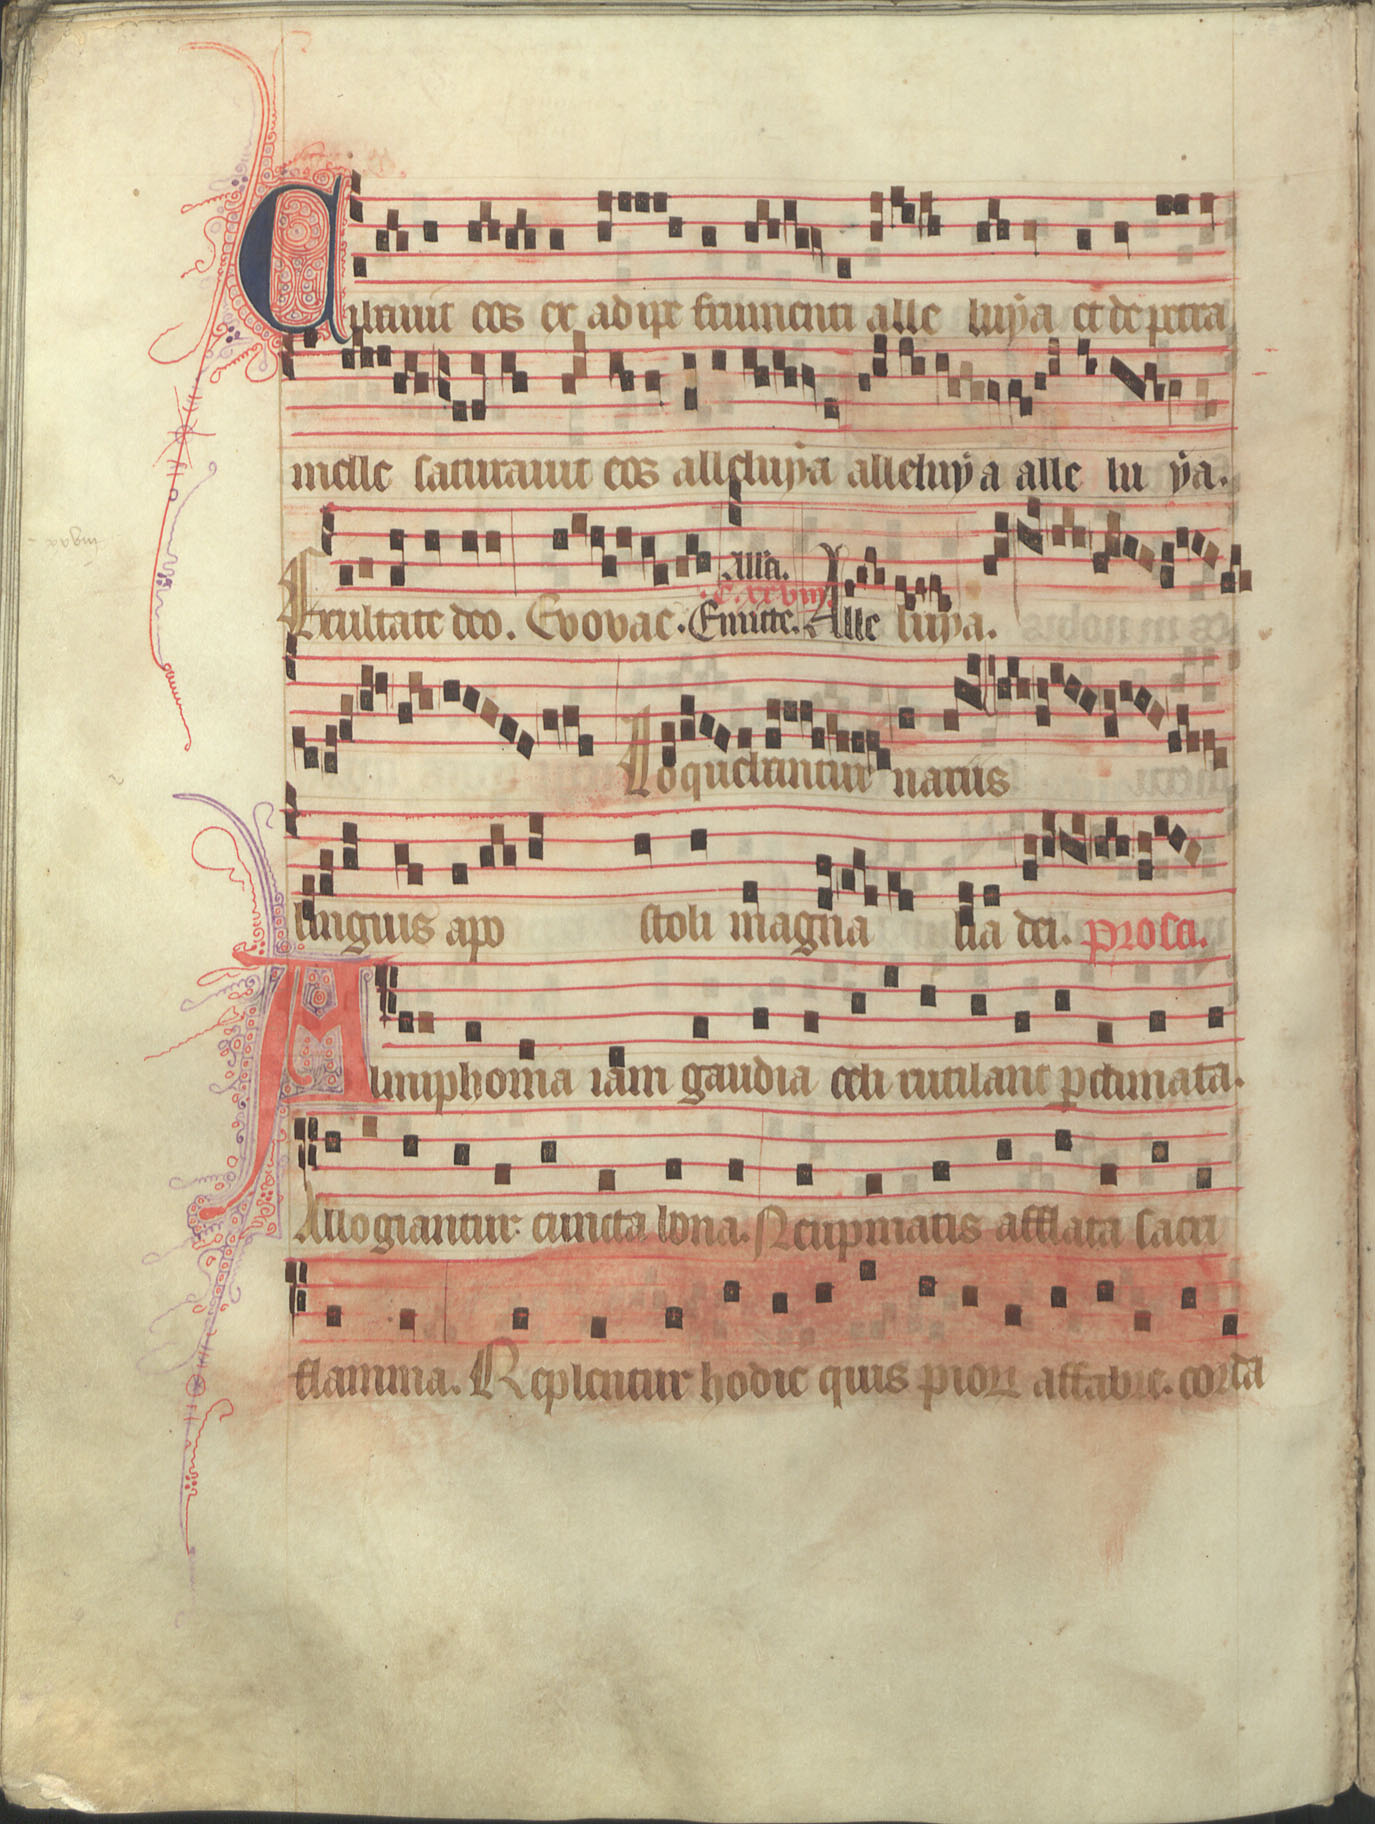 Cibauit eos ex adipe frumenti alle luya et de petra
melle saturauit eos alleluya alleluya alle lu ya.
Alla.
.C. xxviii.
Exultate deo. Euouae. Emitte. Alle luya.
Loquebantur uariis
linguis apo stoli magna lia dei. prosa.
Alimphoma iam gaudia celi rutilant petimata.
Allogiantur cuncta bona. Neupmatis afflata sacri
flamma. Replentur hodie quis pior affabre. corda